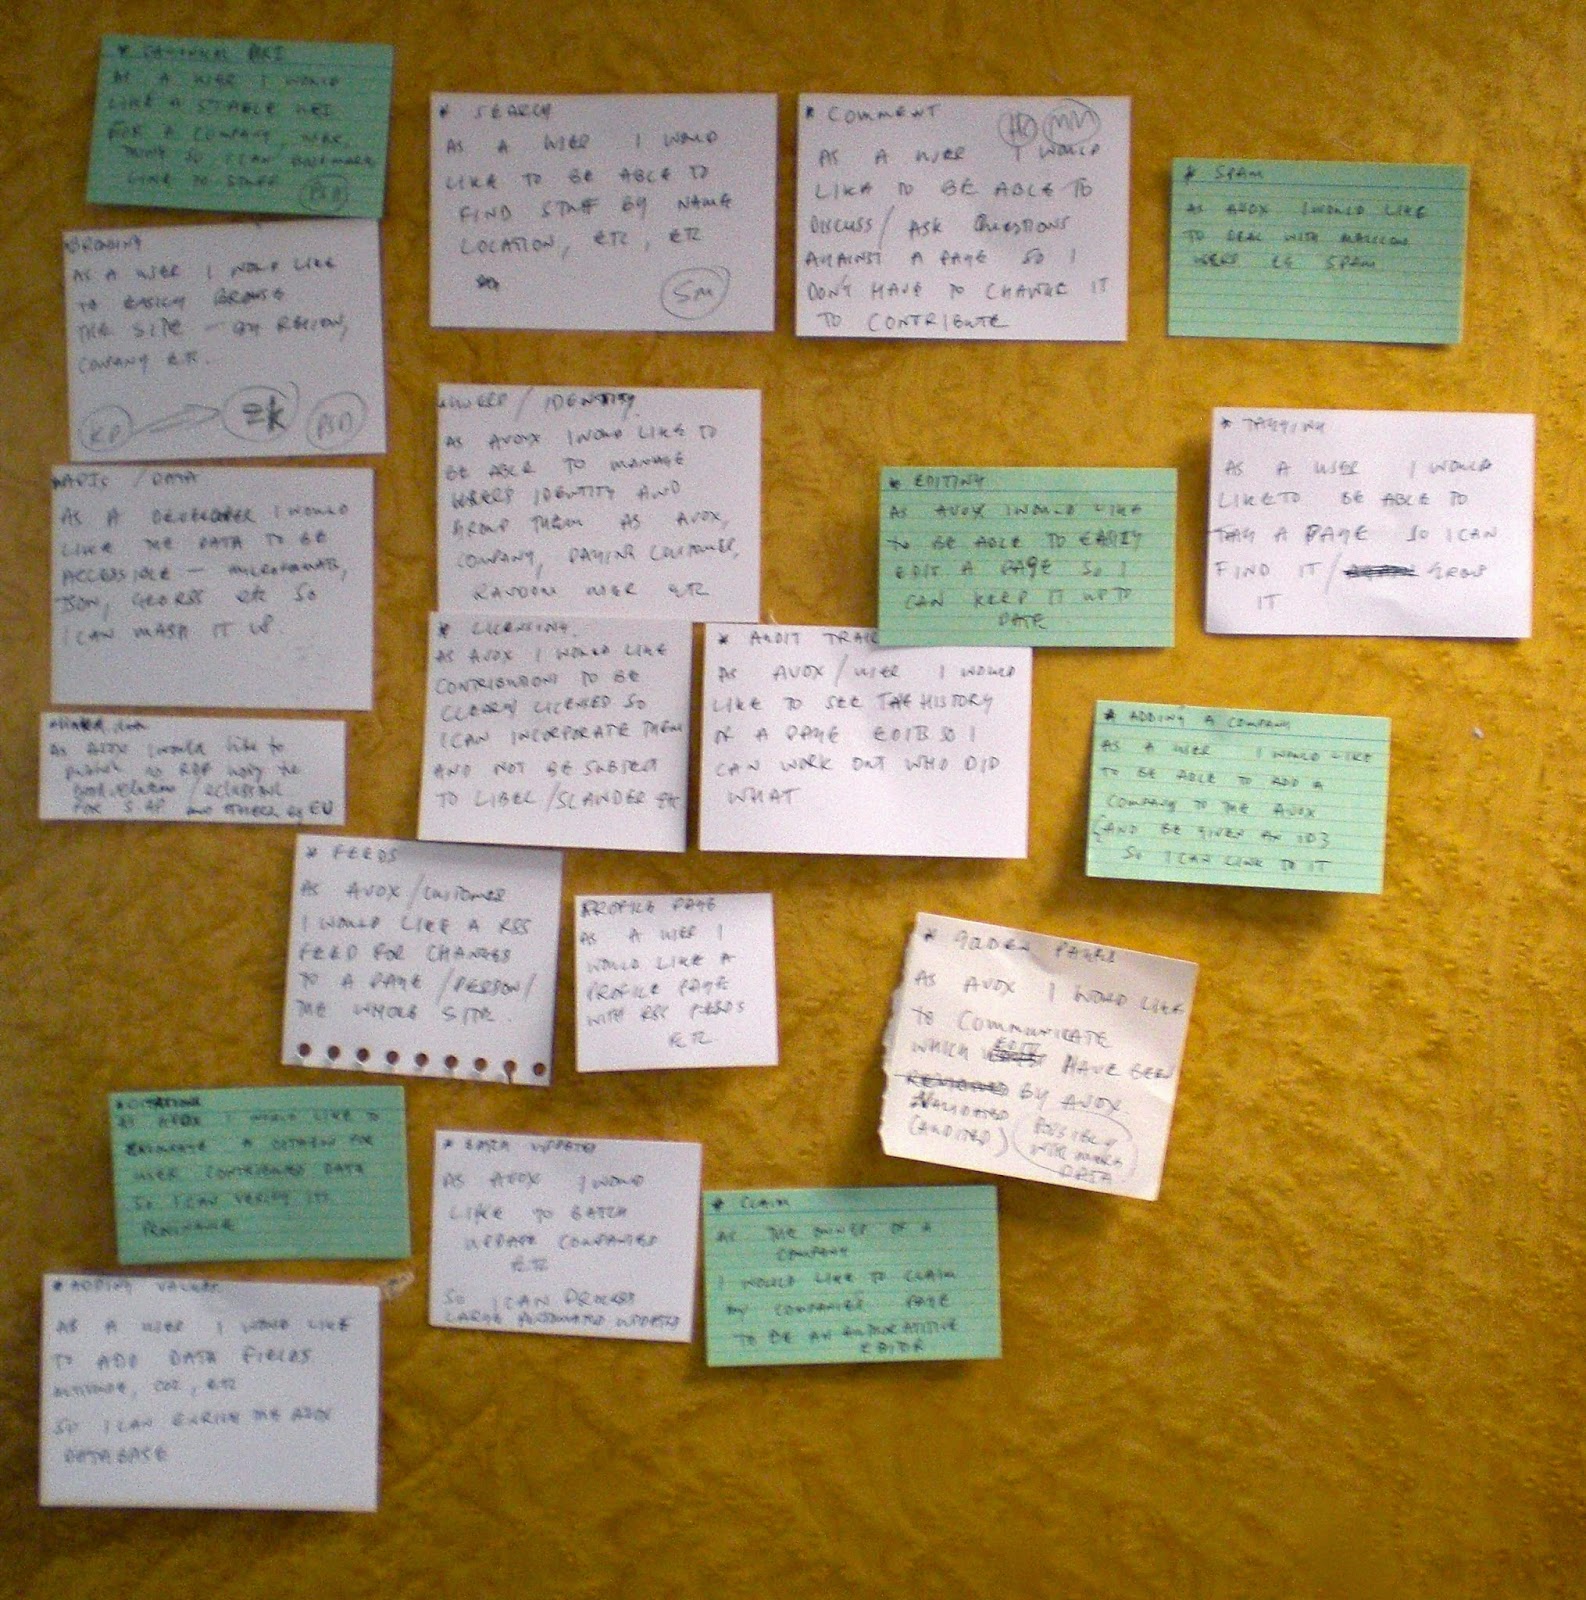 AS A USER I WOULD
LIKE A STABLE URI
FOR A COMPANY,
SO I CAN BOOKMARK
LINK TO STUFF
PSD
* SEARCH
AS A USER I WOULD
LIKE TO BE ABLE TO
FIND STUFF BY NAME
LOCATION, ETC, ETC
SM
* COMMENT
MM
AS A USER I WOULD
LIKE TO BE ABLE TO
DISCUSS/ ASK QUESTIONS
AGAINST A PAGE SO I
DON'T HAVE TO CHANGE IT
TO CONTRIBUTE
* SPAM
AS AVOX I WOULD LIKE
TO DEAL WITH
USERS EG SPAM
AS A USER I WOULD LIKE
TO EASILY BROWSE
THE SITE – BY REGION,
COMPANY ETC..
PSD
*USERS / IDENTITY
AS AVOX I WOULD LIKE TO
BE ABLE TO MANAGE
USERS IDENTITY AND
GROUP THEM AS AVOX,
COMPANY, PAYING CUSTOMER,
RANDOM USER ETC
* TAGGING
AS A USER I WOULD
LIKE TO BE ABLE TO
TAG A PAGE SO I CAN
FIND IT / GROUP
IT
*APIS / DATA
AS A DEVELOPER I WOULD
LIKE THE DATA TO BE
ACCESSIBLE – MICROFORMATS,
JSON, GEORSS etc SO
I CAN MASH IT UP.
* EDITING
AS AVOX I WOULD LIKE
TO BE ABLE TO EASILY
EDIT A PAGE SO I
CAN KEEP IT UP TO
DATE
* LICENSING
AS AVOX I WOULD LIKE
CONTRIBUTIONS TO BE
CLEARLY LICENSED SO
I CAN INCORPORATE THEM
AND NOT BE SUBJECT
TO LIBEL/SLANDER ETC
* AUDIT TRAIL
AS AVOX/USER I WOULD
LIKE TO SEE THE HISTORY
OF A PAGE EDITS SO I
CAN WORK OUT WHO DID
WHAT
As AVOX I would like to
publish as RDF using the
* ADDING A COMPANY
AS A USER I WOULD LIKE
TO BE ABLE TO ADD A
COMPANY TO THE AVOX
(AND BE GIVEN AN ID)
SO I CAN LINK TO IT
* FEEDS
AS AVOX/CUSTOMER
I WOULD LIKE A RSS
FEED FOR CHANGES
TO A PAGE /PERSON/
THE WHOLE SITE.
PROFILE PAGE
AS A USER I
WOULD LIKE A
PROFILE PAGE
WITH RSS FEEDS
ETC
* GOLDEN PAGES
AS AVOX I WOULD LIKE
TO COMMUNICATE
WHICH EDITS HAVE BEEN
BY AVOX
VALIDATED
(AUDITED)
POSSIBLY
WITH
DATA
*CITATION
AS AVOX I WOULD LIKE TO
A CITATION FOR
USER CONTRIBUTED DATA
SO I CAN VERIFY ITS
PROVENANCE
* BATCH UPDATES
AS AVOX I WOULD
LIKE TO BATCH
UPDATE COMPANIES
ETC
SO I CAN PROCESS
LARGE AUTOMATED UPDATES
* CLAIM
AS THE OWNER OF A
COMPANY
I WOULD LIKE TO CLAIM
MY COMPANIES PAGE
TO BE AN AUTHORATITIVE
EDITOR
* ADDING VALUES
AS A USER I WOULD LIKE
TO ADD DATA FIELDS
ALTITUDE, CO2, ETC
SO I CAN ENRICH THE AVOX
DATABASE